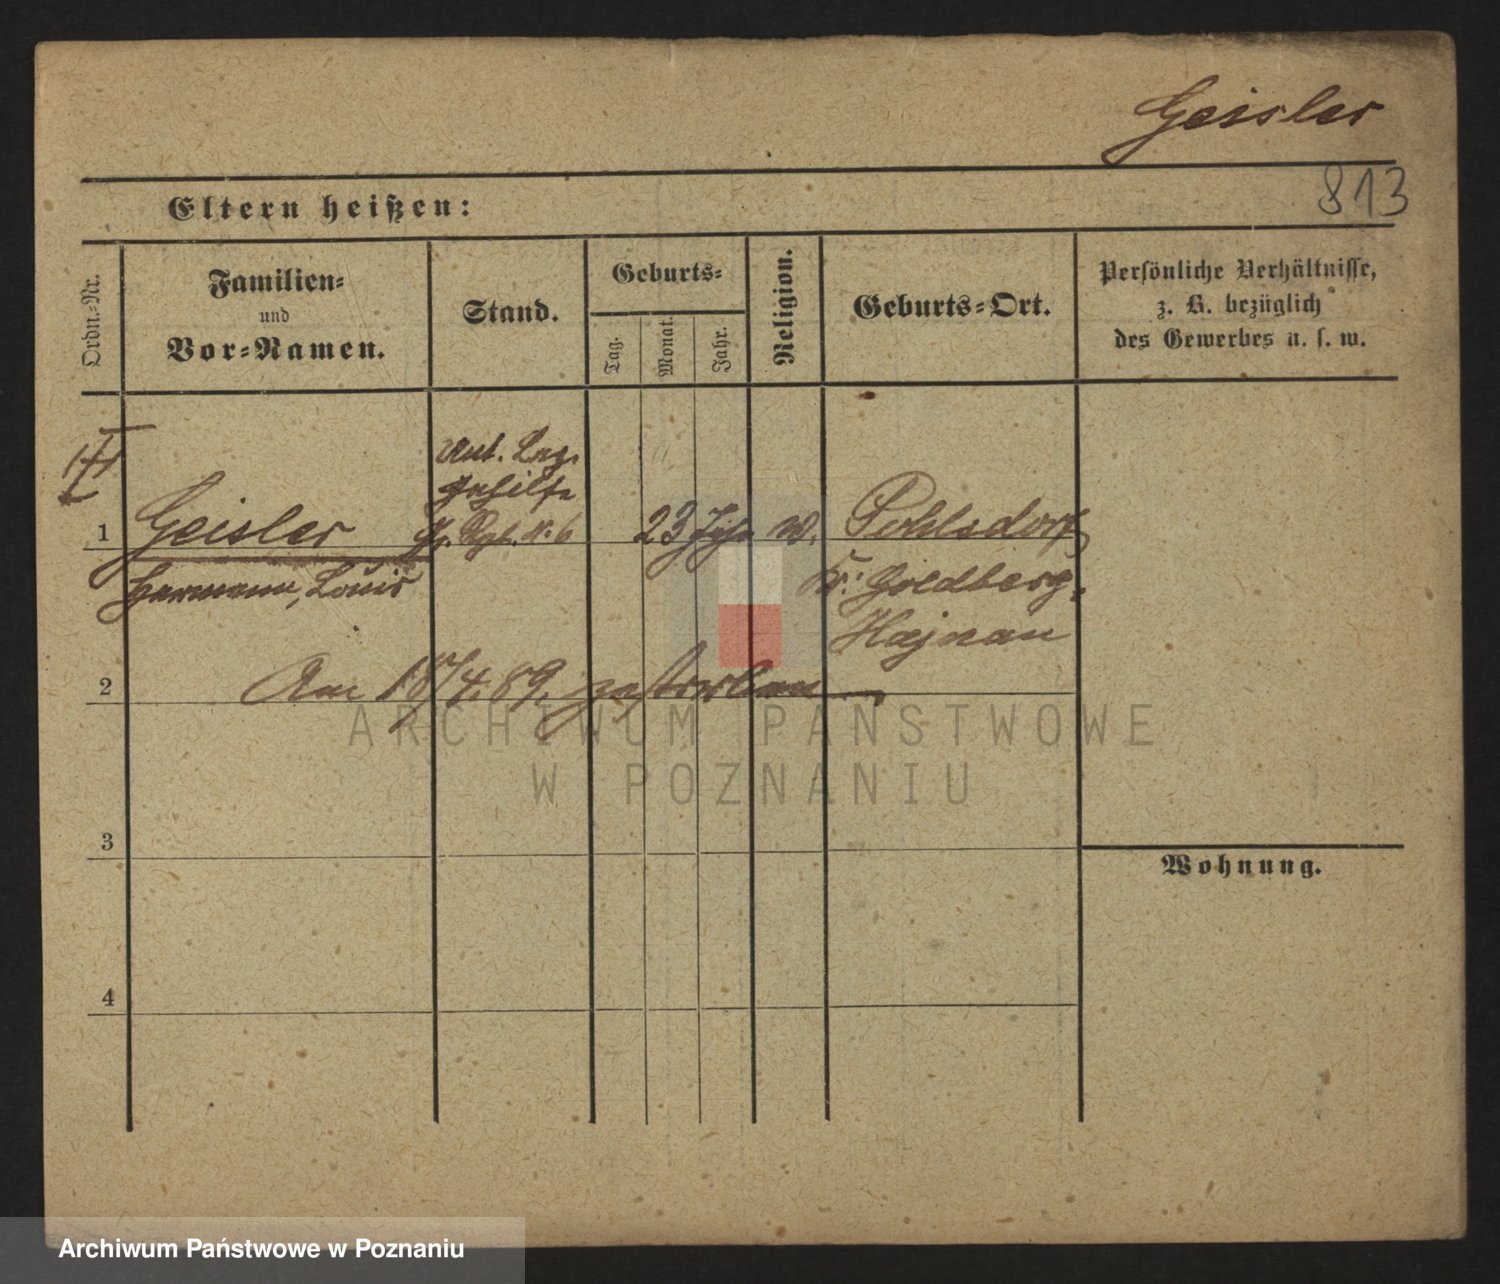 Geisler
813
Eltern heißen:
Ordn.-Nr.
Familien-
und
Vor-Namen.
Stand.
Geburts-
Tag.
Monat.
Jahr.
Religion.
Geburts-Ort.
Persönliche Verhältnisse,
z. B. bezüglich
des Gewerbes u. s. w.
Unt. Laz.
gehilfe
1 Geisler Rgt. N. 6 23 Pohlsdorf
Hermann, Louis Kr. Goldberg-
Hajnau
2 Am 18/4. 89. gestorben
ARCHIWUM PAŃSTWOWE
W POZNANIU
3
Wohnung.
4
Archiwum Państwowe w Poznaniu